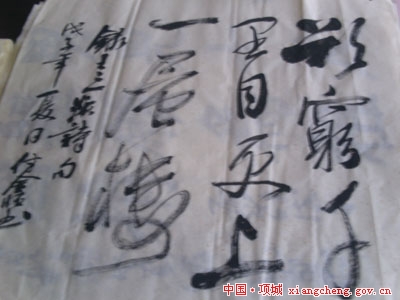 欲窮千
里目更上
一层楼
錄王之渙詩句
戊子年夏日
中国·项城 xiangcheng.gov.cn